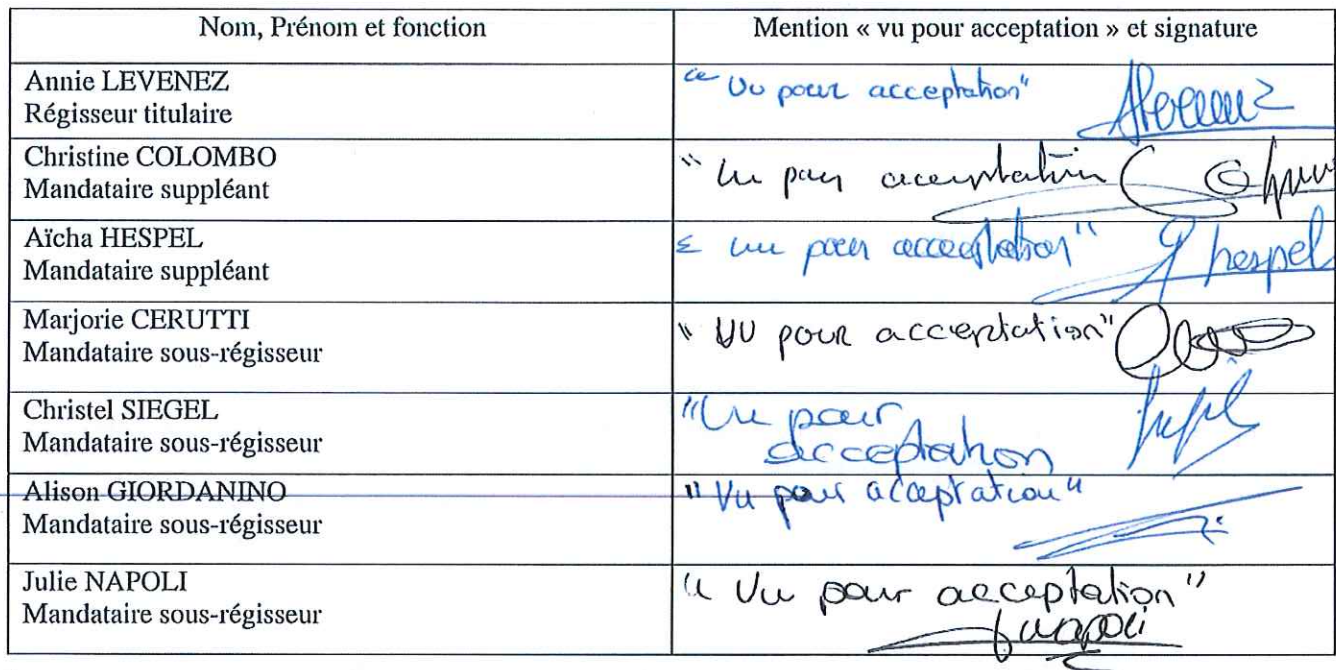 Nom, Prénom et fonction
Mention « vu pour acceptation » et signature
Annie LEVENEZ
Régisseur titulaire
"Vu pour acceptation"
Christine COLOMBO
Mandataire suppléant
"Vu pour acceptation
Aïcha HESPEL
Mandataire suppléant
"vu pour acceptation"
hespel
Marjorie CERUTTI
Mandataire sous-régisseur
"VU pour acceptation"
Christel SIEGEL
Mandataire sous-régisseur
"Vu pour
acceptation
Alison GIORDANINO
Mandataire sous-régisseur
"Vu pour acceptation"
Julie NAPOLI
Mandataire sous-régisseur
"Vu pour acceptation"
napoli